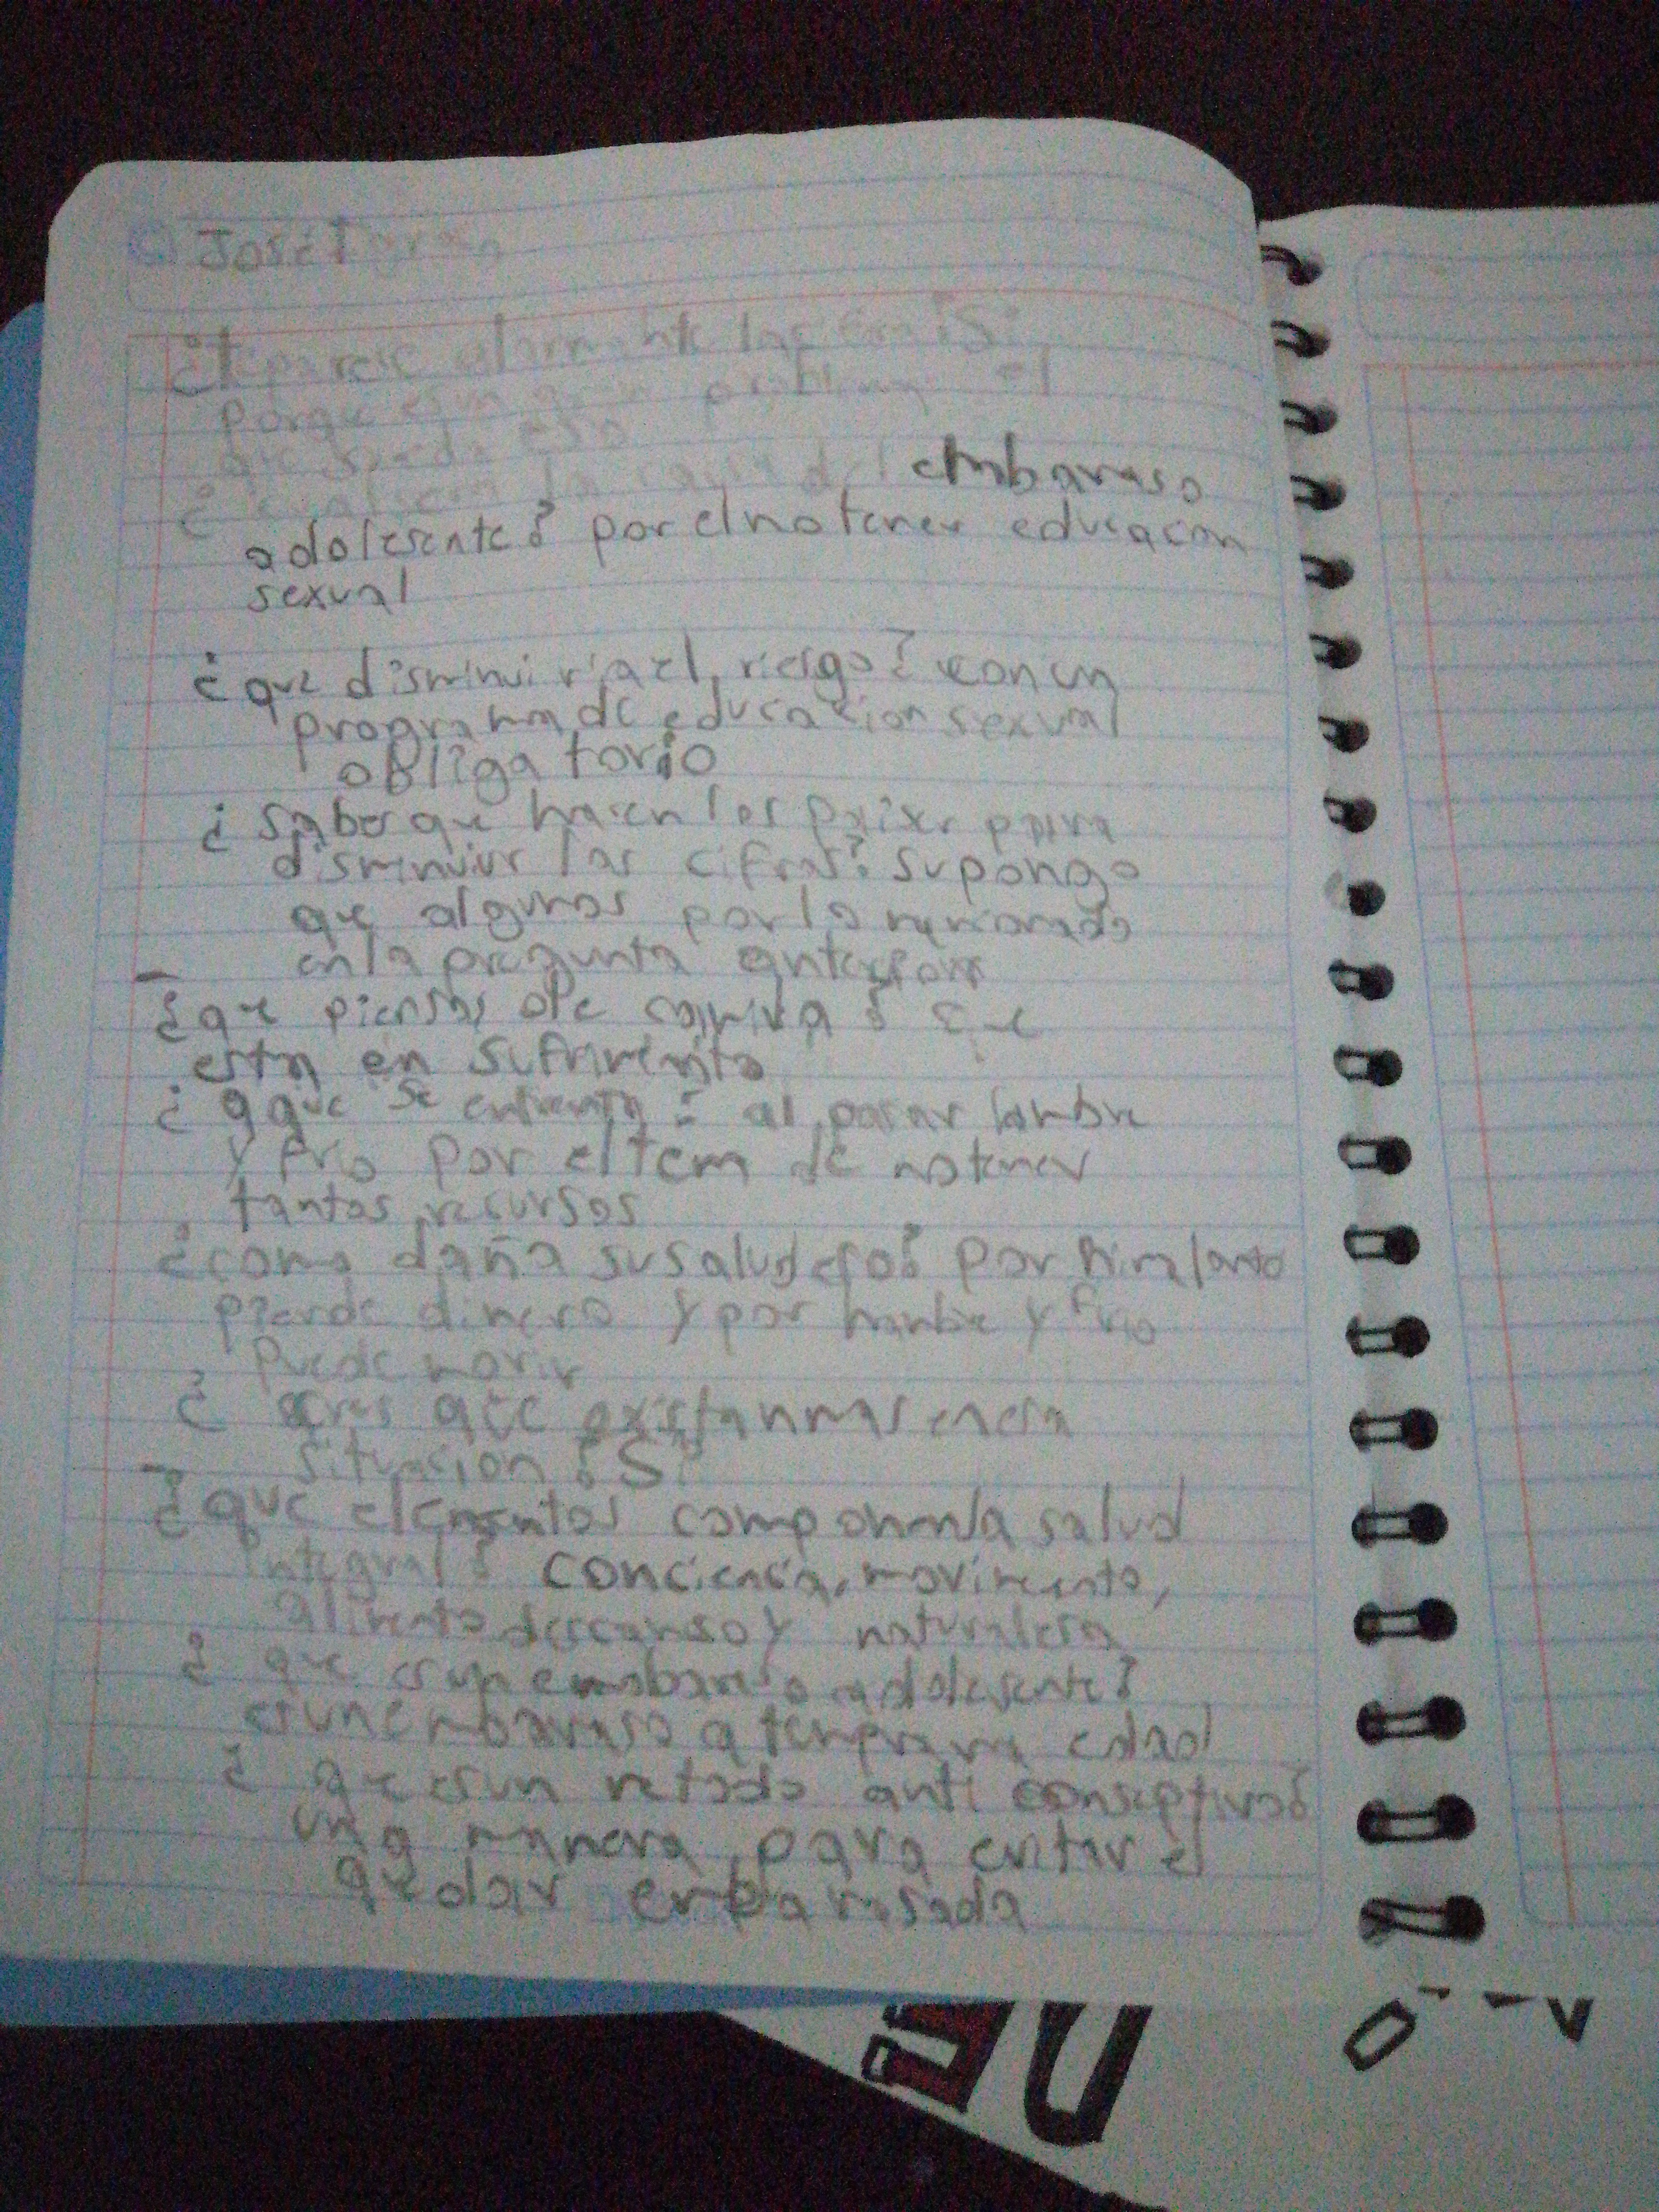 José
¿te parece alarmante las
porque es un gran problema el
que suceda eso
¿ cual sera la causa del embaraso
adolesente? por el no tener educacion
sexual
¿que disminuiria el riesgo? con un
programa de educacion sexual
obligatorio
¿ sabes que hasen los paixes para
disminuir las cifras? supongo
que algunos por lo
en la pregunta anterior
¿que piensas de ? que
esta en sufrimiento
¿ a que se enfrenta? al pasar hambre
y frio por el tem de no tener
tantos recursos
¿como daña su salud eso? por
pierde dinero y por hambre y frio
puede morir
¿ cres que existan mas en esa
situasion? Si
¿que elementos componen la salud
integral? conciencia, movimiento,
alimento descanso y naturalesa
¿ que es un embaraso adolesente?
es un embaraso a temprana edad
¿ que es un metodo anti conseptivo?
una manera para evitar el
quedar embarasada
DE